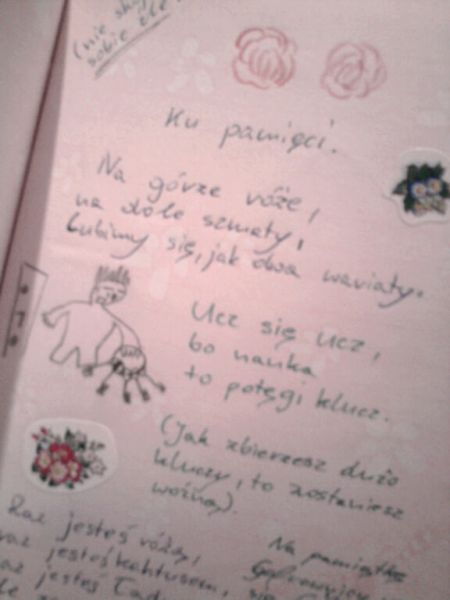 (nie
sobie
Ku pamięci.
Na górze róże,
na dole szmaty,
lubimy się, jak dwa wariaty.
Ucz się ucz,
bo nauka
to potęgi klucz.
(Jak zbierzesz dużo
kluczy, to zostaniesz
woźną).
Raz jesteś różą,
raz jesteś kaktusem,
raz jesteś
Na pamiątkę